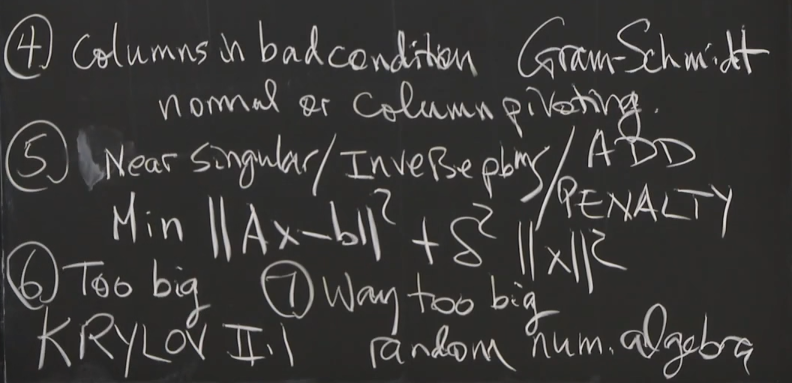 ④ Columns in bad condition Gram-Schmidt
normal or column pivoting.
⑤ Near singular/Inverse pbms/ADD
/PENALTY
Min ||Ax-b||² + δ² ||x||²
⑥ Too big ⑦ Way too big
KRYLOV II.1 random num. algebra